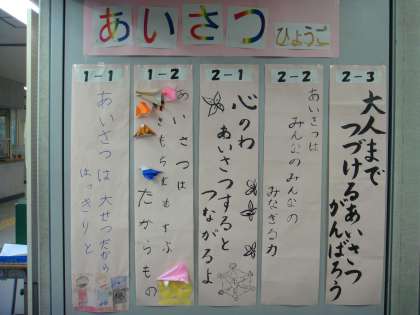 あいさつ
ひょうご
1-1
あいさつは大せつだから
はっきりと
1-2
あいさつは
たからもの
2-1
心のわ
あいさつすると
つながるよ
2-2
あいさつは
みんなのみんなの
みなぎる力
2-3
大人まで
つづけるあいさつ
がんばろう